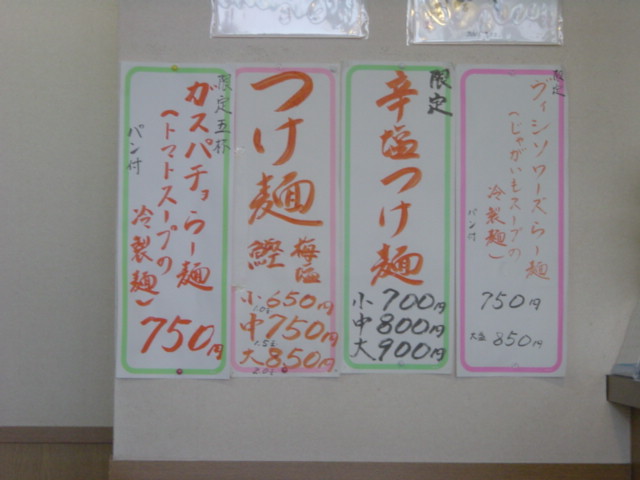 限定
ヴィシソワーズらー麺
(じゃがいもスープの
冷製麺)
パン付
750円
大盛 850円
限定
辛塩つけ麺
小 700円
中 800円
大 900円
つけ麺
鰹
梅塩
小 650円
中 750円
1.5玉
大 850円
2.0玉
限定五杯
ガスパチョらー麺
(トマトスープの
冷製麺)
パン付
750円